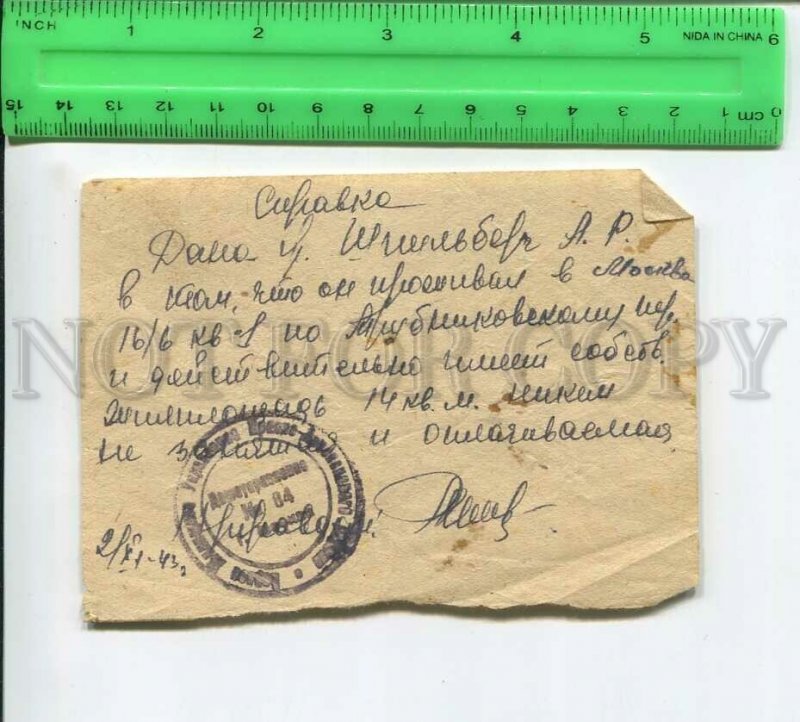 INCH 1 2 3 4 5 6
NIDA IN CHINA
15 14 13 12 11 10 9 8 7 6 5 4 3 2 1 0 cm
Справка
Дана гр. Шпильберг А. Р.
в том, что он проживал в Москва
16/6 кв 1 по Трубниковскому пер.
и действительно имеет собств.
жилплощадь 14 кв. м. никем
не занятая и оплачиваемая
Домоуправление
№ 64
2/XI-43 г
NOT FOR COPY